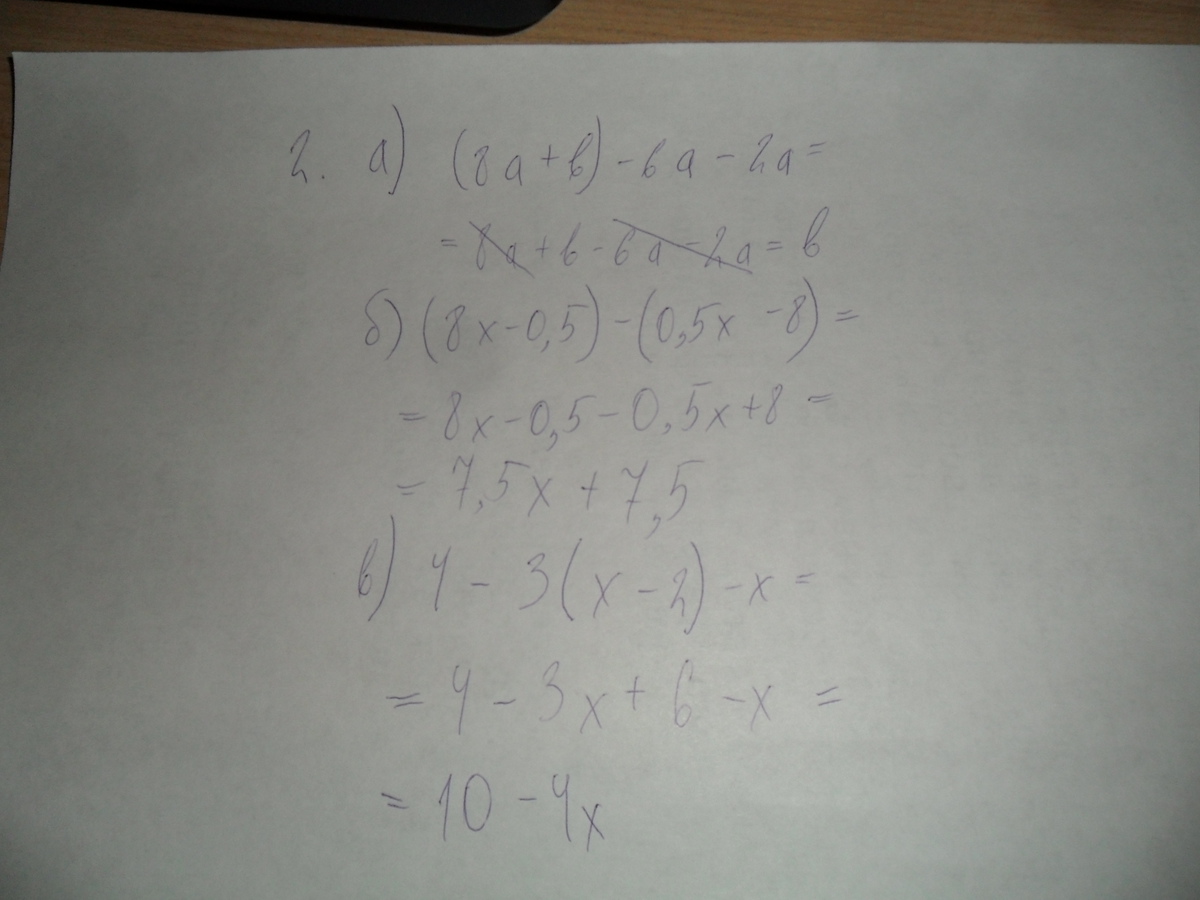 2. а) (8a + b) - 6a - 2a =
= 8a + b - 6a - 2a = b
б) (8x - 0,5) - (0,5x - 8) =
= 8x - 0,5 - 0,5x + 8 =
= 7,5x + 7,5
в) 4 - 3(x - 2) - x =
= 4 - 3x + 6 - x =
= 10 - 4x